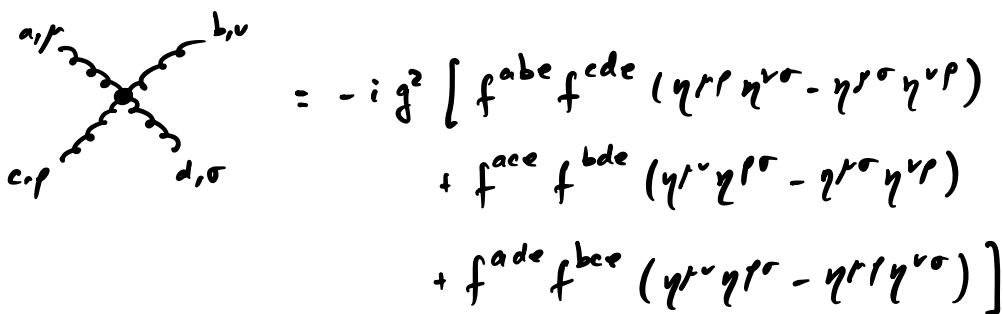 a,μ b,ν
= -i g² [ f^{abe} f^{cde} (η^{μρ} η^{νσ} - η^{μσ} η^{νρ})
c,ρ d,σ
+ f^{ace} f^{bde} (η^{μν} η^{ρσ} - η^{μσ} η^{νρ})
+ f^{ade} f^{bce} (η^{μν} η^{ρσ} - η^{μρ} η^{νσ}) ]